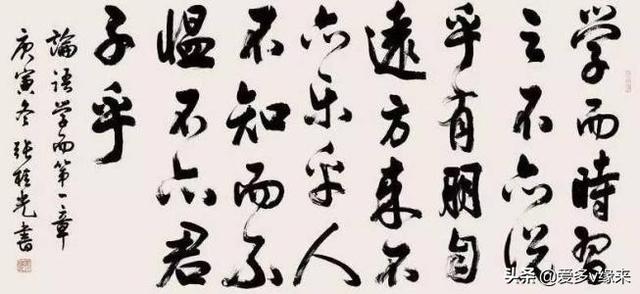 学而時習
之不亦说
乎有朋自
遠方来不
亦乐乎人
不知而不
愠不亦君
子乎
論语学而第一章
庚寅冬张桂光書
头条@爱多v缘来